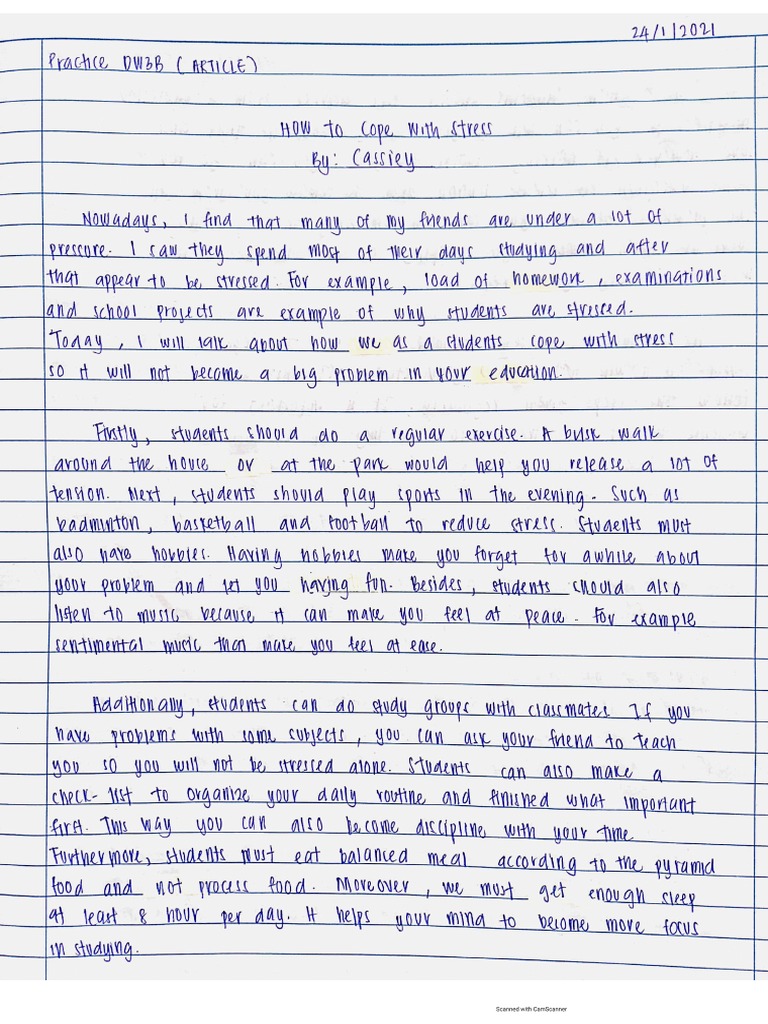 24/1/2021
Practice DW3B (ARTICLE)
HOW to Cope With Stress
By: Cassiey
Nowadays, I find that many of my friends are under a lot of
pressure. I saw they spend most of their days studying and after
that appear to be stressed. For example, load of homework, examinations
and school projects are example of why students are stressed.
Today, I will talk about how we as a students cope with stress
so it will not become a big problem in your education.
Firstly, students should do a regular exercise. A brisk walk
around the house or at the park would help you release a lot of
tension. Next, students should play sports in the evening. Such as
badminton, basketball and football to reduce stress. Students must
also have hobbies. Having hobbies make you forget for awhile about
your problem and let you having fun. Besides, students should also
listen to music because it can make you feel at peace. For example
sentimental music that make you feel at ease.
Additionally, students can do study groups with classmates. If you
have problems with some subjects, you can ask your friend to teach
you so you will not be stressed alone. Students can also make a
check-list to organize your daily routine and finished what important
first. This way you can also become discipline with your time.
Furthermore, students must eat balanced meal according to the pyramid
food and not process food. Moreover, we must get enough sleep
at least 8 hour per day. It helps your mind to become more focus
in studying.
Scanned with CamScanner